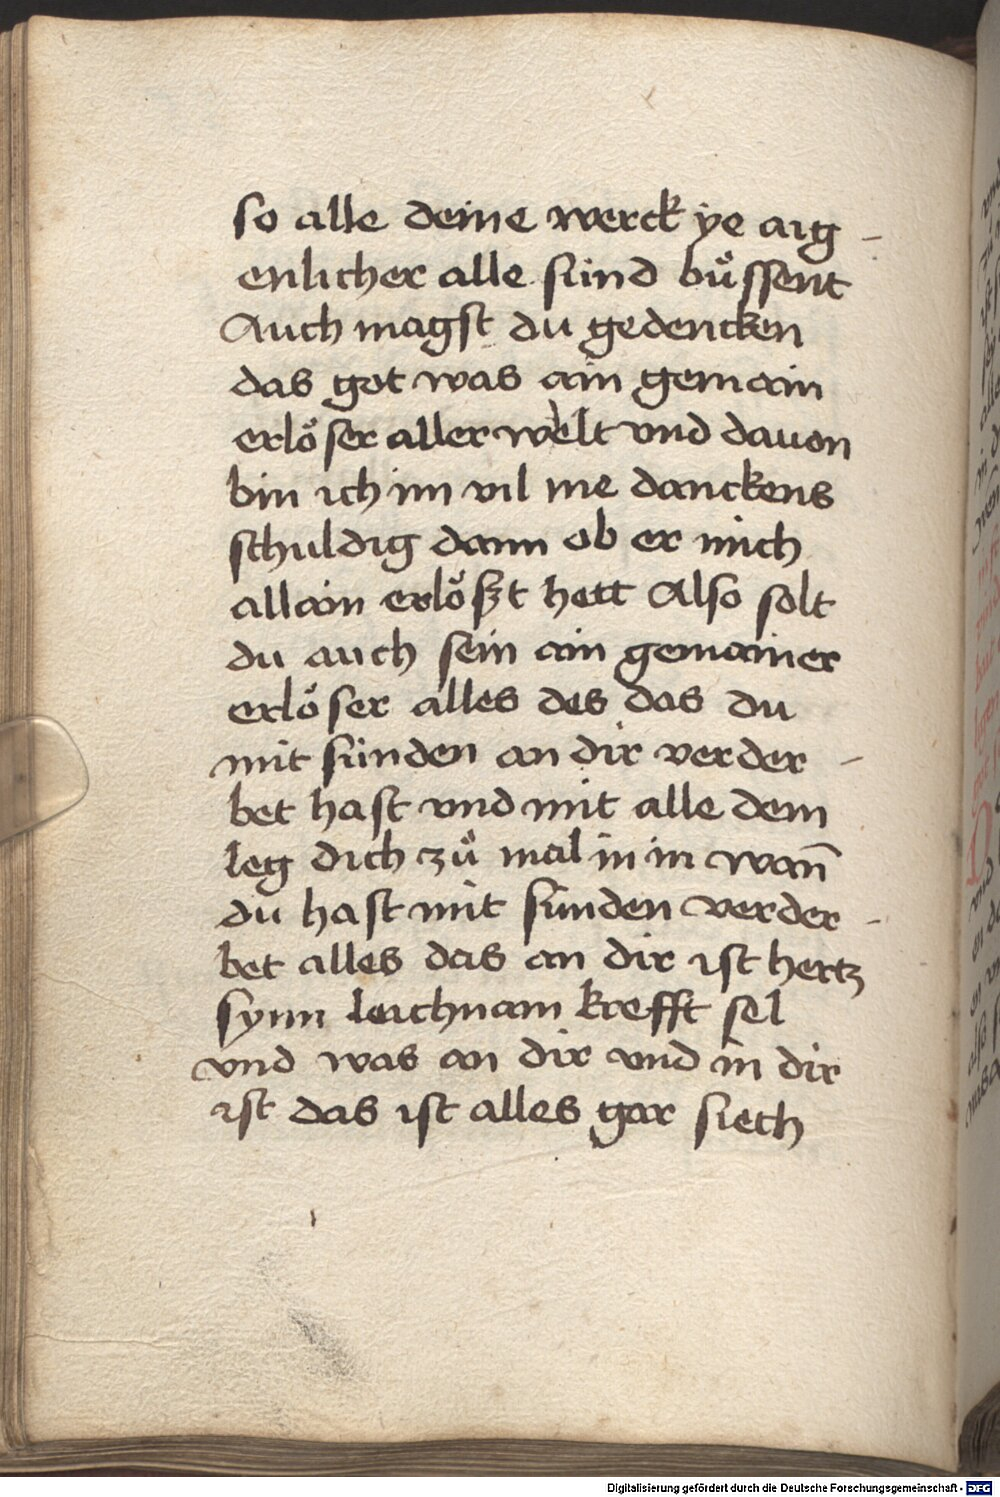 so alle deine werck ye aig-
enlicher alle sünd bu̎ssent
Auch magst du gedencken
das got was ain gemain
erlo̎ser aller welt vnd dauon
bin ich im vil me danckens
schuldig dann ob er mich
allain erlo̎szt hett Also solt
du auch sein ain gemainer
erlo̎ser alles des das du
mit sünden an dir verder-
bet hast vnd mit alle dem
leg dich zu̎ mal in in wan̄
du hast mit sünden verder-
bet alles das an dir ist hertz
synn leichnam krefft sel
vnd was an dir vnd in dir
ist das ist alles gar siech
Digitalisierung gefördert durch die Deutsche Forschungsgemeinschaft - DFG